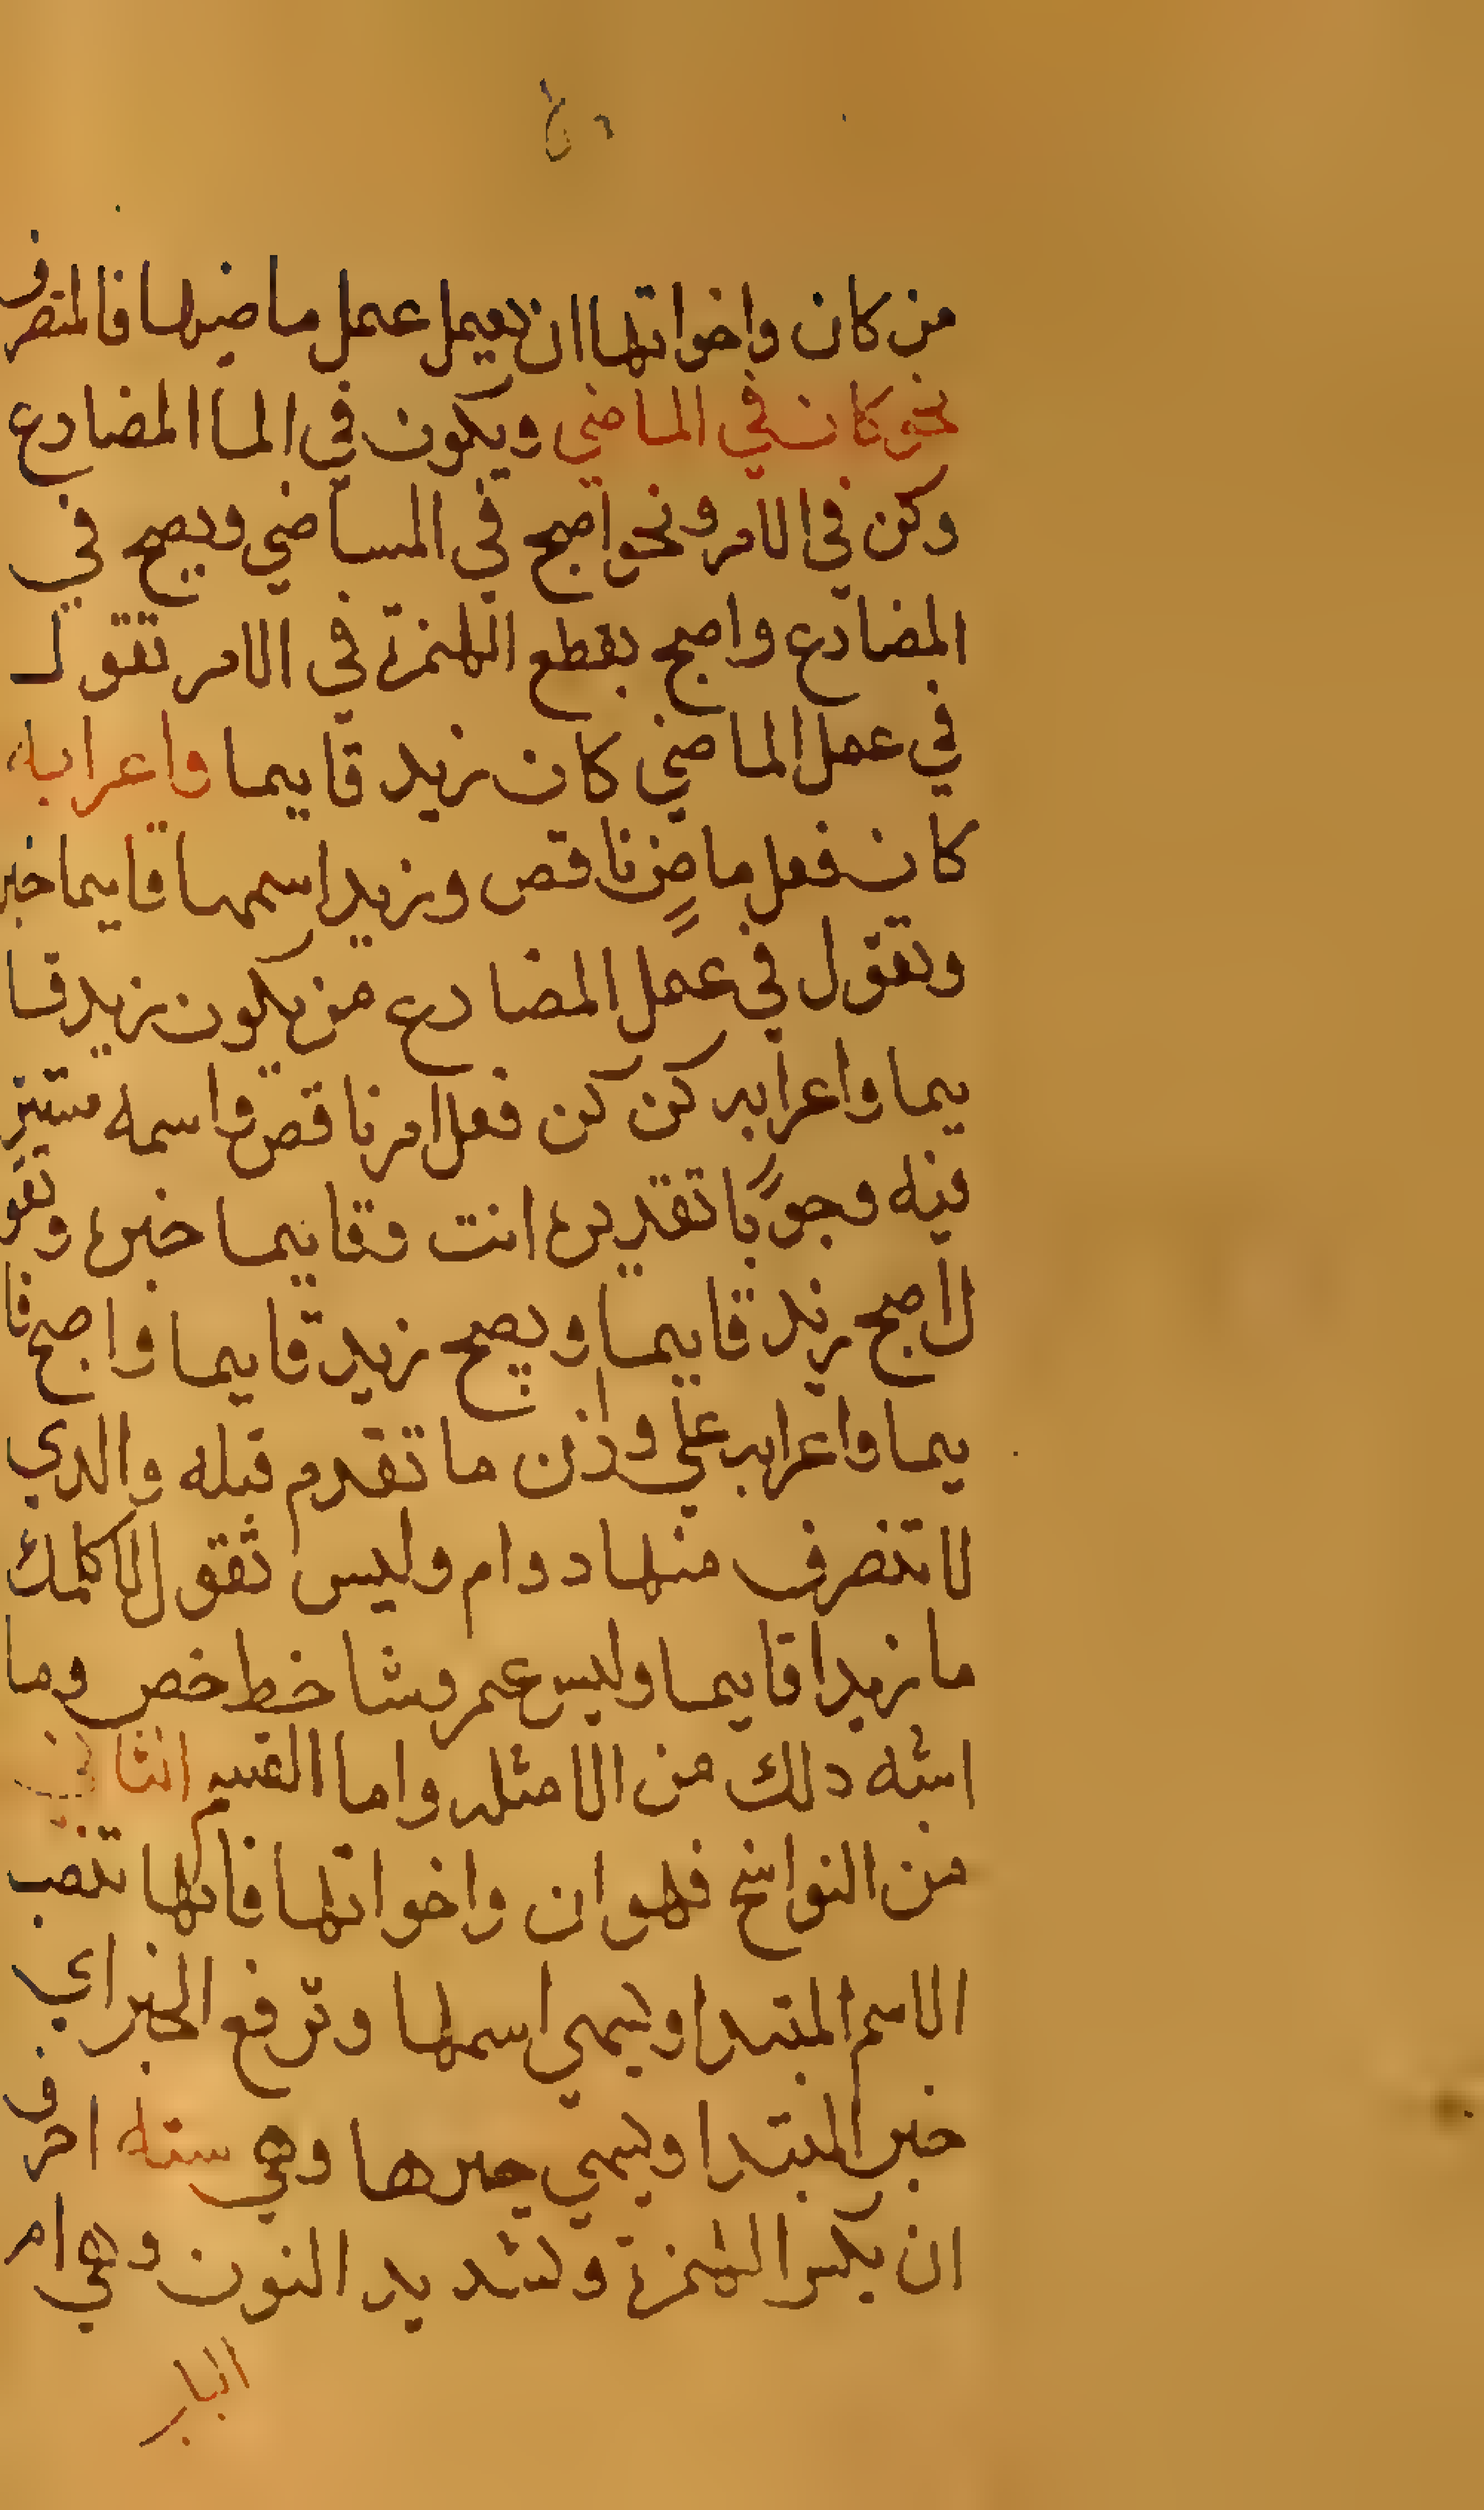 من كان واخواتها ان يعمل عمل ماضيها فالمتصرف
نحو كان في الماضي ويكون في الما المضارع
وكن في الامر ونحو اصبح في المساضي ويصبح في
المضارع واصبح بقطع الهمزة في الامر تقول
في عمل الماضي كان زيد قايما واعرابه
كان فعل ماضٍ ناقص وزيد اسمها قايما خبر
وتقول في عمل المضارع من يكون زيد قا
يما واعرابه كن كن فعل امر ناقص واسمه مستتر
فيه وجوبًا تقديره انت وقايما خبره وتقو
ل اصبح زيد قايما ويصبح زيد قايما واصبح قا
يما واعرابه علي وذن ما تقدم قبله والدي
لا تتصرف منها دوام وليس تقول لا كلمك
ما زيدا قايما وليس عمر وشا خط خص وما
اشبه دلك من الامثله واما القسم الثاني
من النواسخ فهو ان واخواتها فانها تنصب
الاسم المبتدا ويسمي اسمها وترفع الخبر اي
خبر المبتدا ويسمي خبرها وهي سته احرف
ان بكسر الهمزة وتشديد النون وهي ام